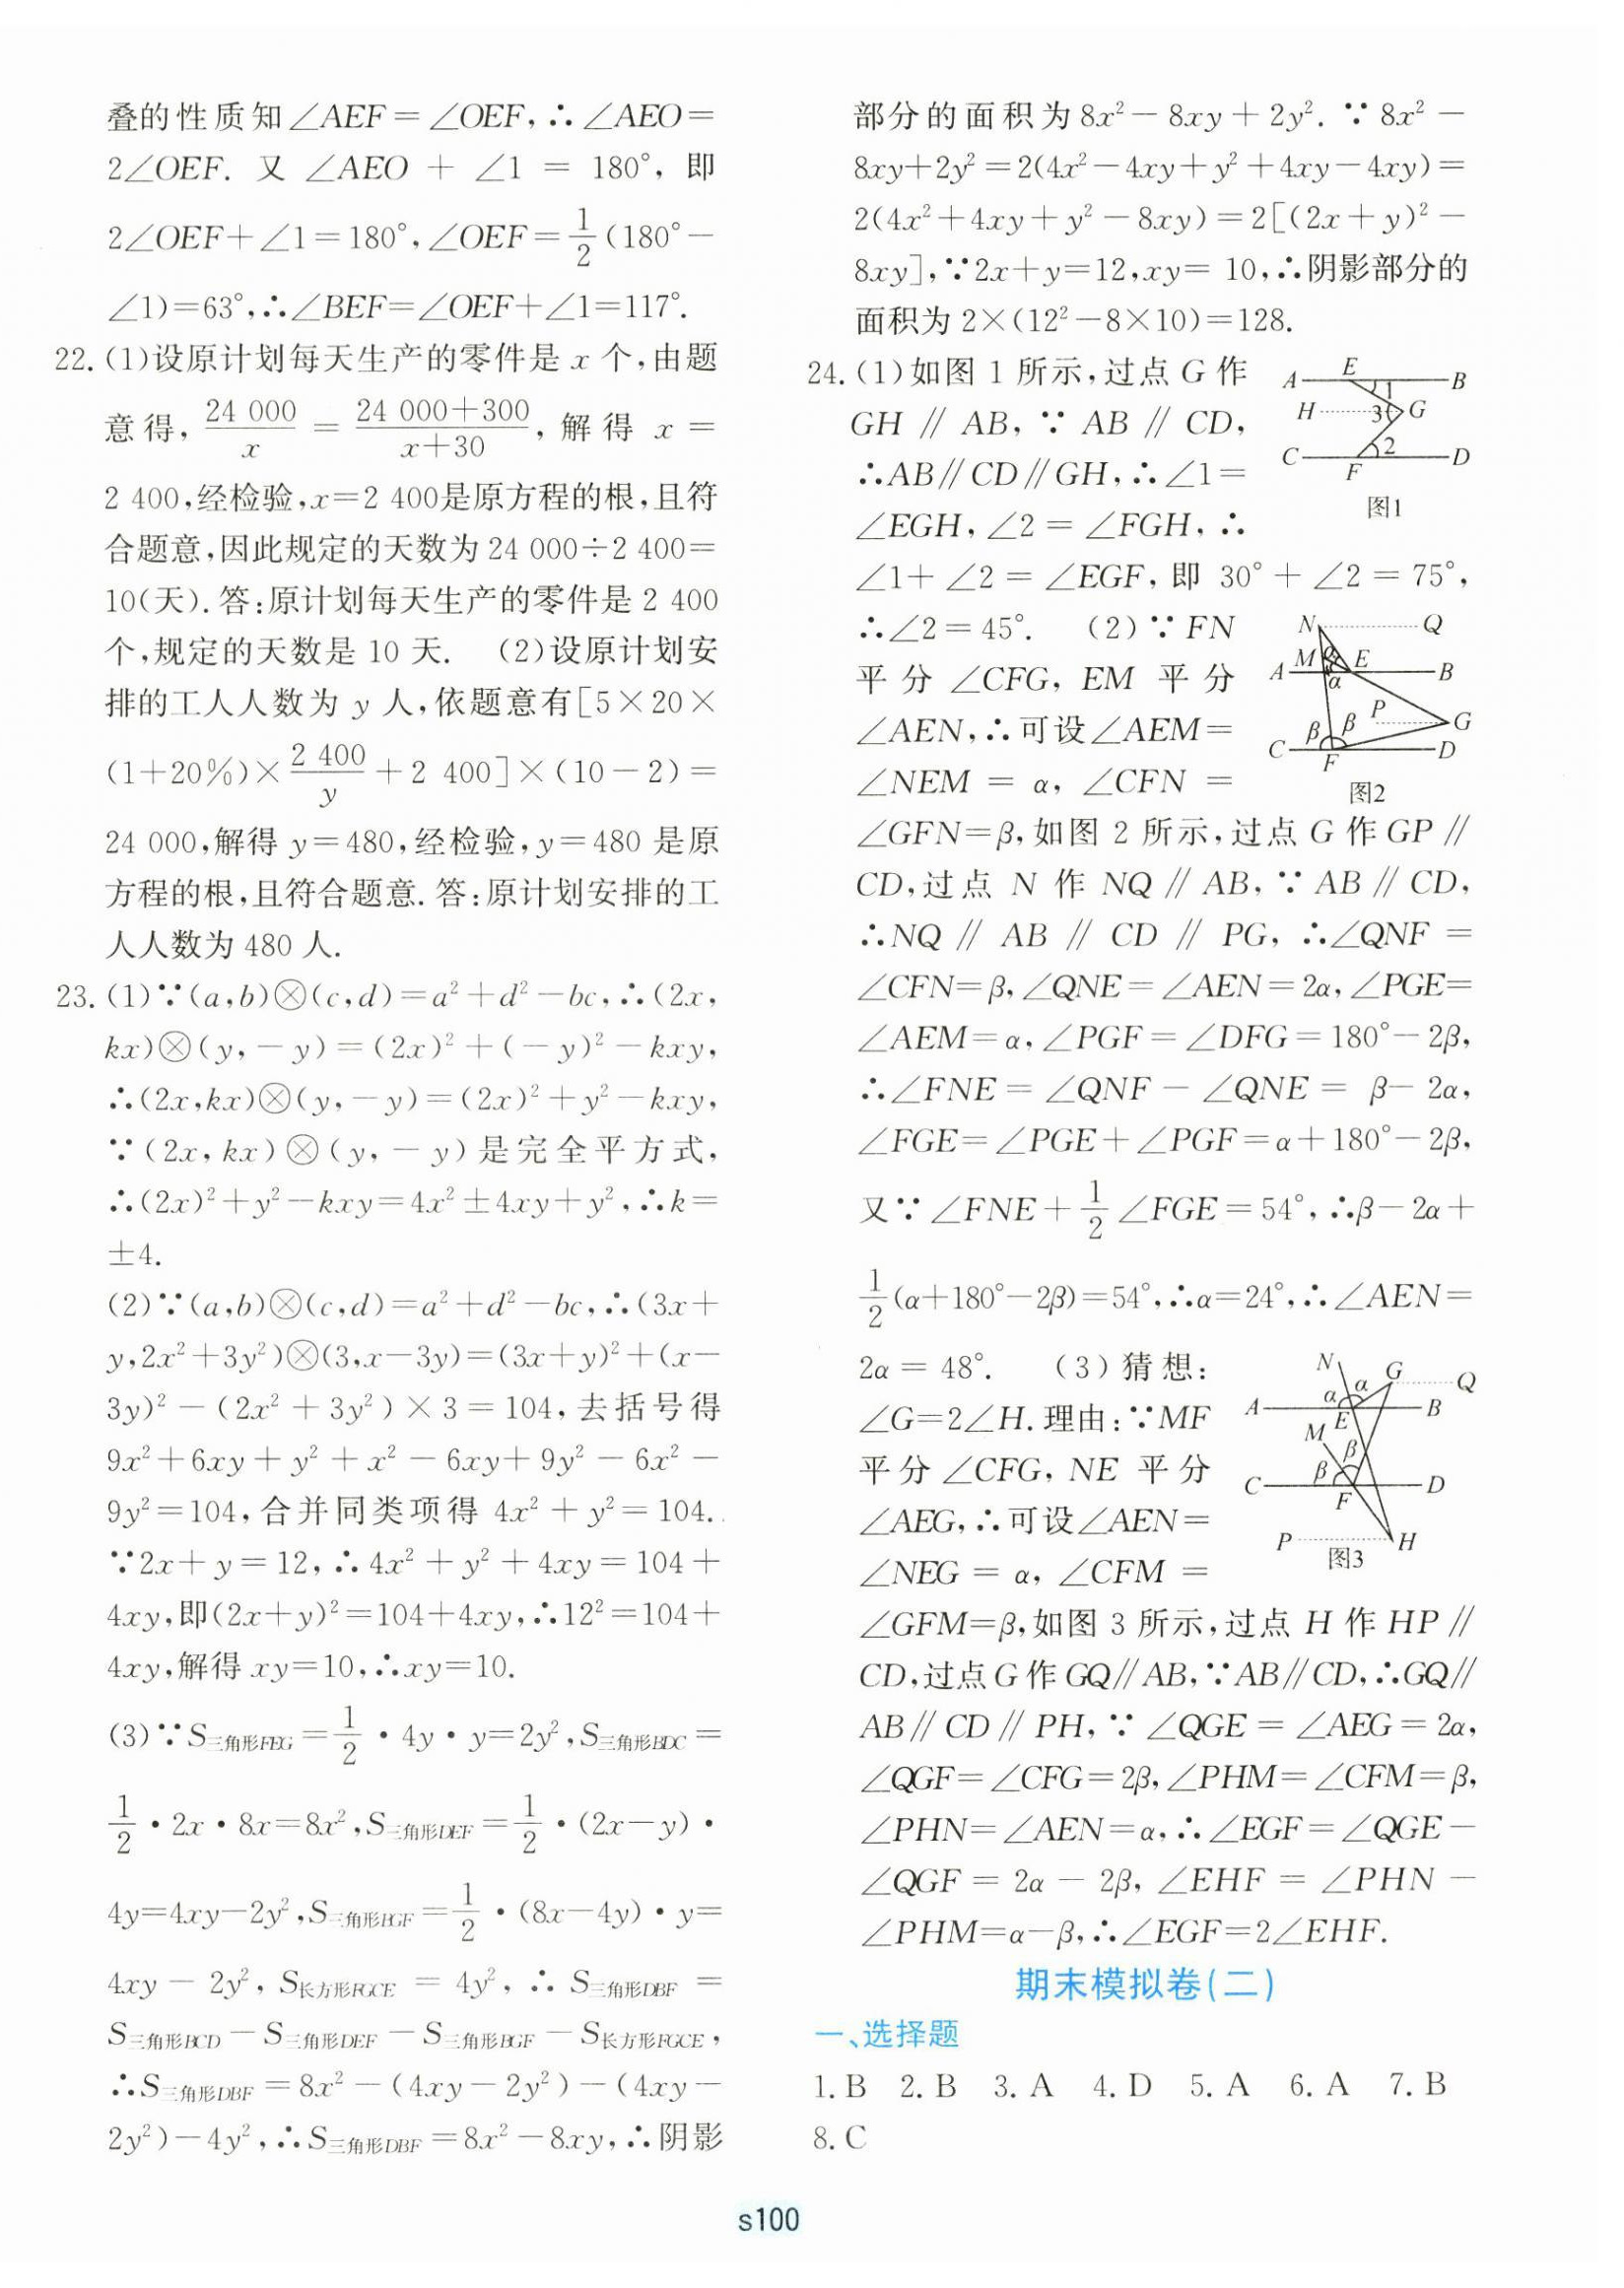 叠的性质知∠AEF=∠OEF,∴∠AEO=
2∠OEF. 又 ∠AEO + ∠1 = 180°, 即
2∠OEF+∠1=180°,∠OEF=1/2(180°-
∠1)=63°,∴∠BEF=∠OEF+∠1=117°.
22.(1)设原计划每天生产的零件是 x 个,由题
意得, 24 000/x = (24 000+300)/(x+30), 解得 x =
2 400,经检验,x=2 400是原方程的根,且符
合题意,因此规定的天数为 24 000÷2 400=
10(天). 答:原计划每天生产的零件是 2 400
个,规定的天数是 10 天. (2)设原计划安
排的工人人数为 y 人,依题意有[5×20×
(1+20%)×2 400/y+2 400]×(10-2)=
24 000,解得 y=480,经检验,y=480 是原
方程的根,且符合题意. 答:原计划安排的工
人人数为 480 人.
23.(1)∵(a,b)⊗(c,d)=a²+d²-bc,∴(2x,
kx)⊗(y,-y)=(2x)²+(-y)²-kxy,
∴(2x,kx)⊗(y,-y)=(2x)²+y²-kxy,
∵(2x,kx)⊗(y,-y)是完全平方式,
∴(2x)²+y²-kxy=4x²±4xy+y²,∴k=
±4.
(2)∵(a,b)⊗(c,d)=a²+d²-bc,∴(3x+
y,2x²+3y²)⊗(3,x-3y)=(3x+y)²+(x-
3y)²-(2x²+3y²)×3=104,去括号得
9x²+6xy+y²+x²-6xy+9y²-6x²-
9y²=104,合并同类项得 4x²+y²=104.
∵2x+y=12,∴4x²+y²+4xy=104+
4xy,即(2x+y)²=104+4xy,∴12²=104+
4xy,解得 xy=10,∴xy=10.
(3)∵S三角形FEG=1/2·4y·y=2y²,S三角形BDC=
1/2·2x·8x=8x²,S三角形DEF=1/2·(2x-y)·
4y=4xy-2y²,S三角形BGF=1/2·(8x-4y)·y=
4xy-2y²,S长方形FGCE=4y²,∴S三角形DBF=
S三角形BCD-S三角形DEF-S三角形BGF-S长方形FGCE,
∴S三角形DBF=8x²-(4xy-2y²)-(4xy-
2y²)-4y²,∴S三角形DBF=8x²-8xy,∴阴影
部分的面积为 8x²-8xy+2y². ∵8x²-
8xy+2y²=2(4x²-4xy+y²+4xy-4xy)=
2(4x²+4xy+y²-8xy)=2[(2x+y)²-
8xy],∵2x+y=12,xy= 10,∴阴影部分的
面积为 2×(12²-8×10)=128.
24.(1)如图 1 所示,过点 G 作
GH∥AB,∵AB∥CD,
∴AB∥CD∥GH,∴∠1=
∠EGH,∠2=∠FGH,∴
A E B
1
H 3 G
2
C F D
图1
∠1+∠2=∠EGF,即 30°+∠2=75°,
∴∠2=45°. (2)∵FN
平分∠CFG,EM 平分
∠AEN,∴可设∠AEM=
∠NEM = α,∠CFN =
N Q
A M α E B
α
P G
β β
C F D
图2
∠GFN=β,如图 2 所示,过点 G 作 GP∥
CD,过点 N 作 NQ∥AB,∵AB∥CD,
∴NQ∥AB∥CD∥PG,∴∠QNF=
∠CFN=β,∠QNE=∠AEN=2α,∠PGE=
∠AEM=α,∠PGF=∠DFG=180°-2β,
∴∠FNE=∠QNF-∠QNE= β-2α,
∠FGE=∠PGE+∠PGF=α+180°-2β,
又∵∠FNE+1/2∠FGE=54°,∴β-2α+
1/2(α+180°-2β)=54°,∴α=24°,∴∠AEN=
2α=48°. (3)猜想:
∠G=2∠H.理由:∵MF
平分∠CFG,NE 平分
∠AEG,∴可设∠AEN=
∠NEG = α,∠CFM =
N G Q
α α
A E B
M
β
C β F D
P H
图3
∠GFM=β,如图 3 所示,过点 H 作 HP∥
CD,过点 G 作 GQ∥AB,∵AB∥CD,∴GQ∥
AB∥CD∥PH,∵∠QGE=∠AEG=2α,
∠QGF=∠CFG=2β,∠PHM=∠CFM=β,
∠PHN=∠AEN=α,∴∠EGF=∠QGE-
∠QGF=2α-2β,∠EHF=∠PHN-
∠PHM=α-β,∴∠EGF=2∠EHF.
期末模拟卷(二)
一、选择题
1. B 2. B 3. A 4. D 5. A 6. A 7. B
8. C
s100